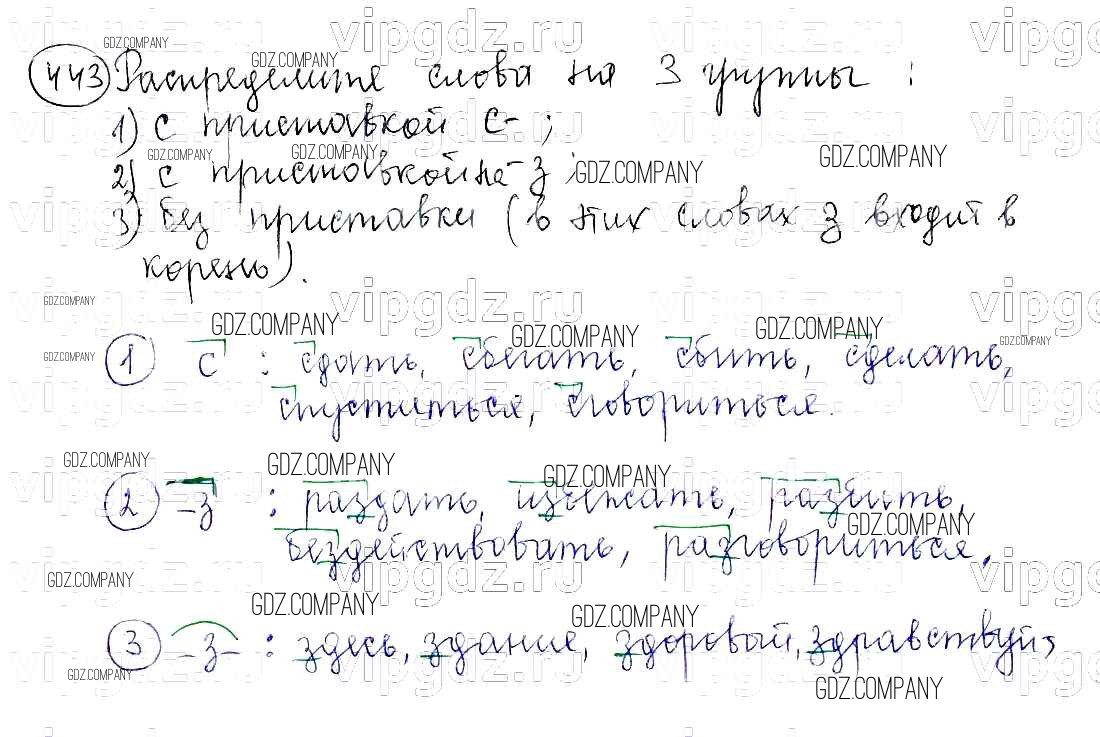 443 Распределите слова на 3 группы :
1) с приставкой с- ;
2) с приставкой на -з ;
3) без приставки (в этих словах з входит в
корень).
1 с : сдать, сбегать, сбить, сделать,
спуститься, сговориться.
2 -з : раздать, избежать, разбить,
бездействовать, разговориться,
3 -з- : здесь, здание, здоровый, здравствуй,
GDZ.COMPANY
vipgdz.ru